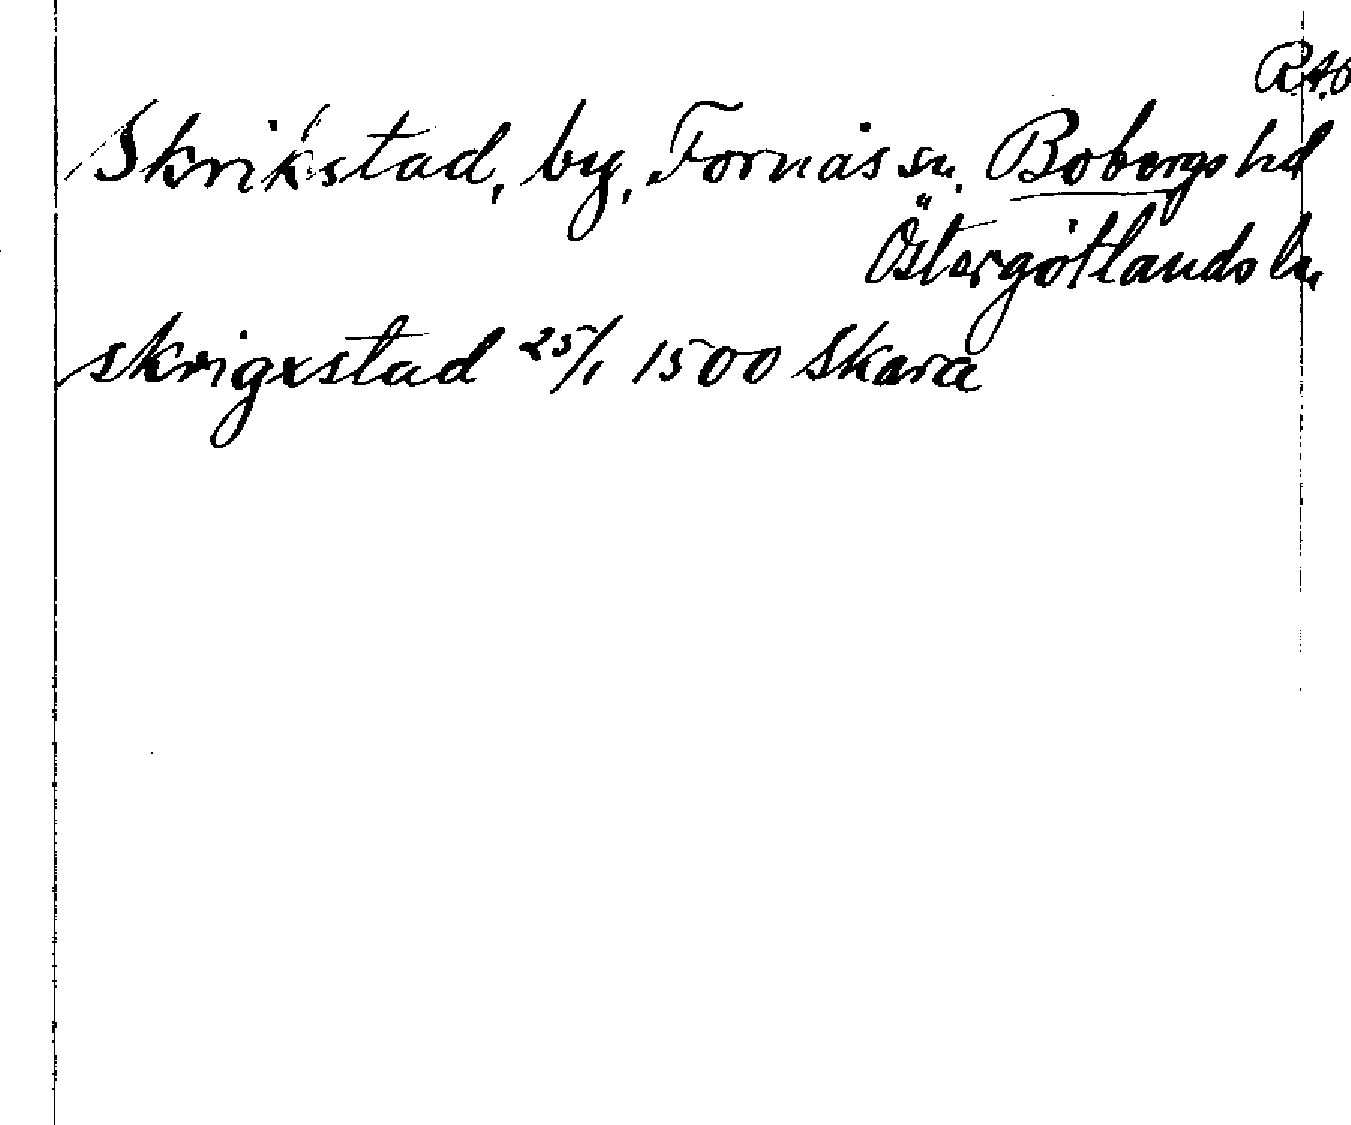 RAO
Skrikstad, by, Fornåsa sn. Bobergs hd
Östergötlands ln,
skrigxstad 25/1 1500 Skara